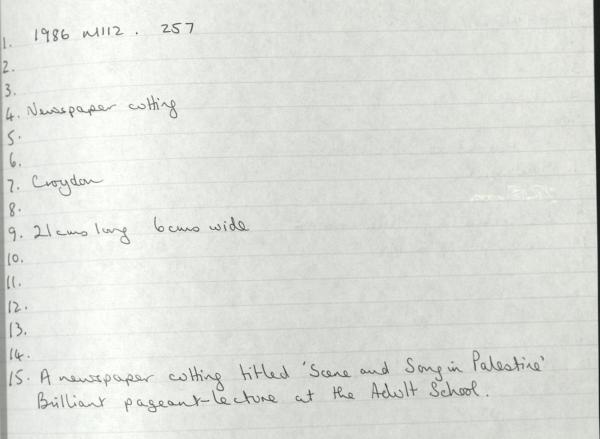 1. 1986 M112. 257
2.
3.
4. Newspaper cutting
5.
6.
7. Croydon
8.
9. 21cms long 6cms wide
10.
11.
12.
13.
14.
15. A newspaper cutting titled 'Scene and Song in Palestine'
Brilliant pageant-lecture at the Adult School.